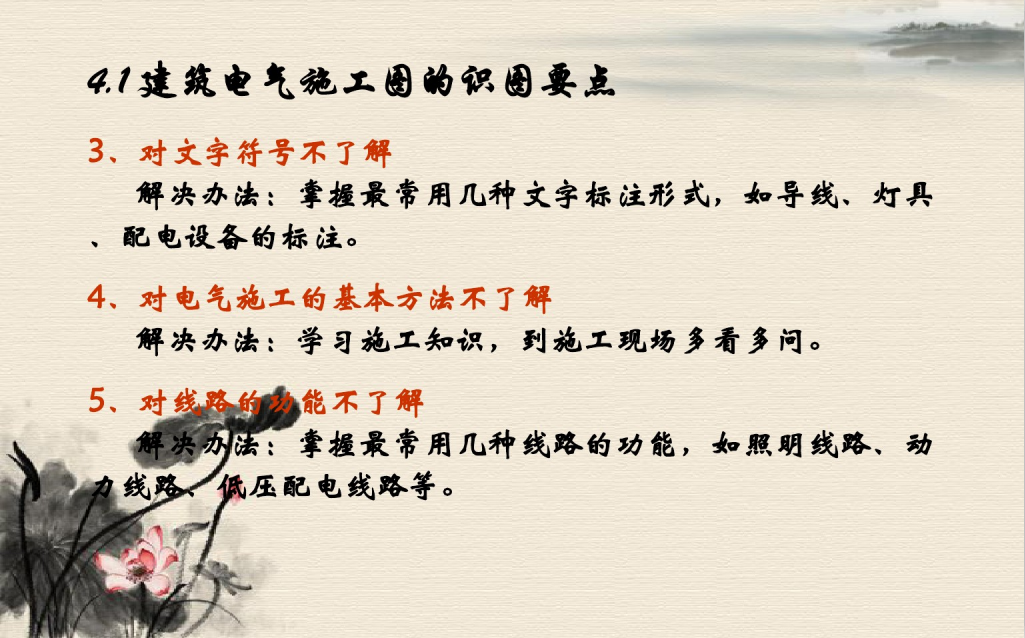 4.1建筑电气施工图的识图要点
3、对文字符号不了解
解决办法：掌握最常用几种文字标注形式，如导线、灯具
、配电设备的标注。
4、对电气施工的基本方法不了解
解决办法：学习施工知识，到施工现场多看多问。
5、对线路的功能不了解
解决办法：掌握最常用几种线路的功能，如照明线路、动
力线路、低压配电线路等。